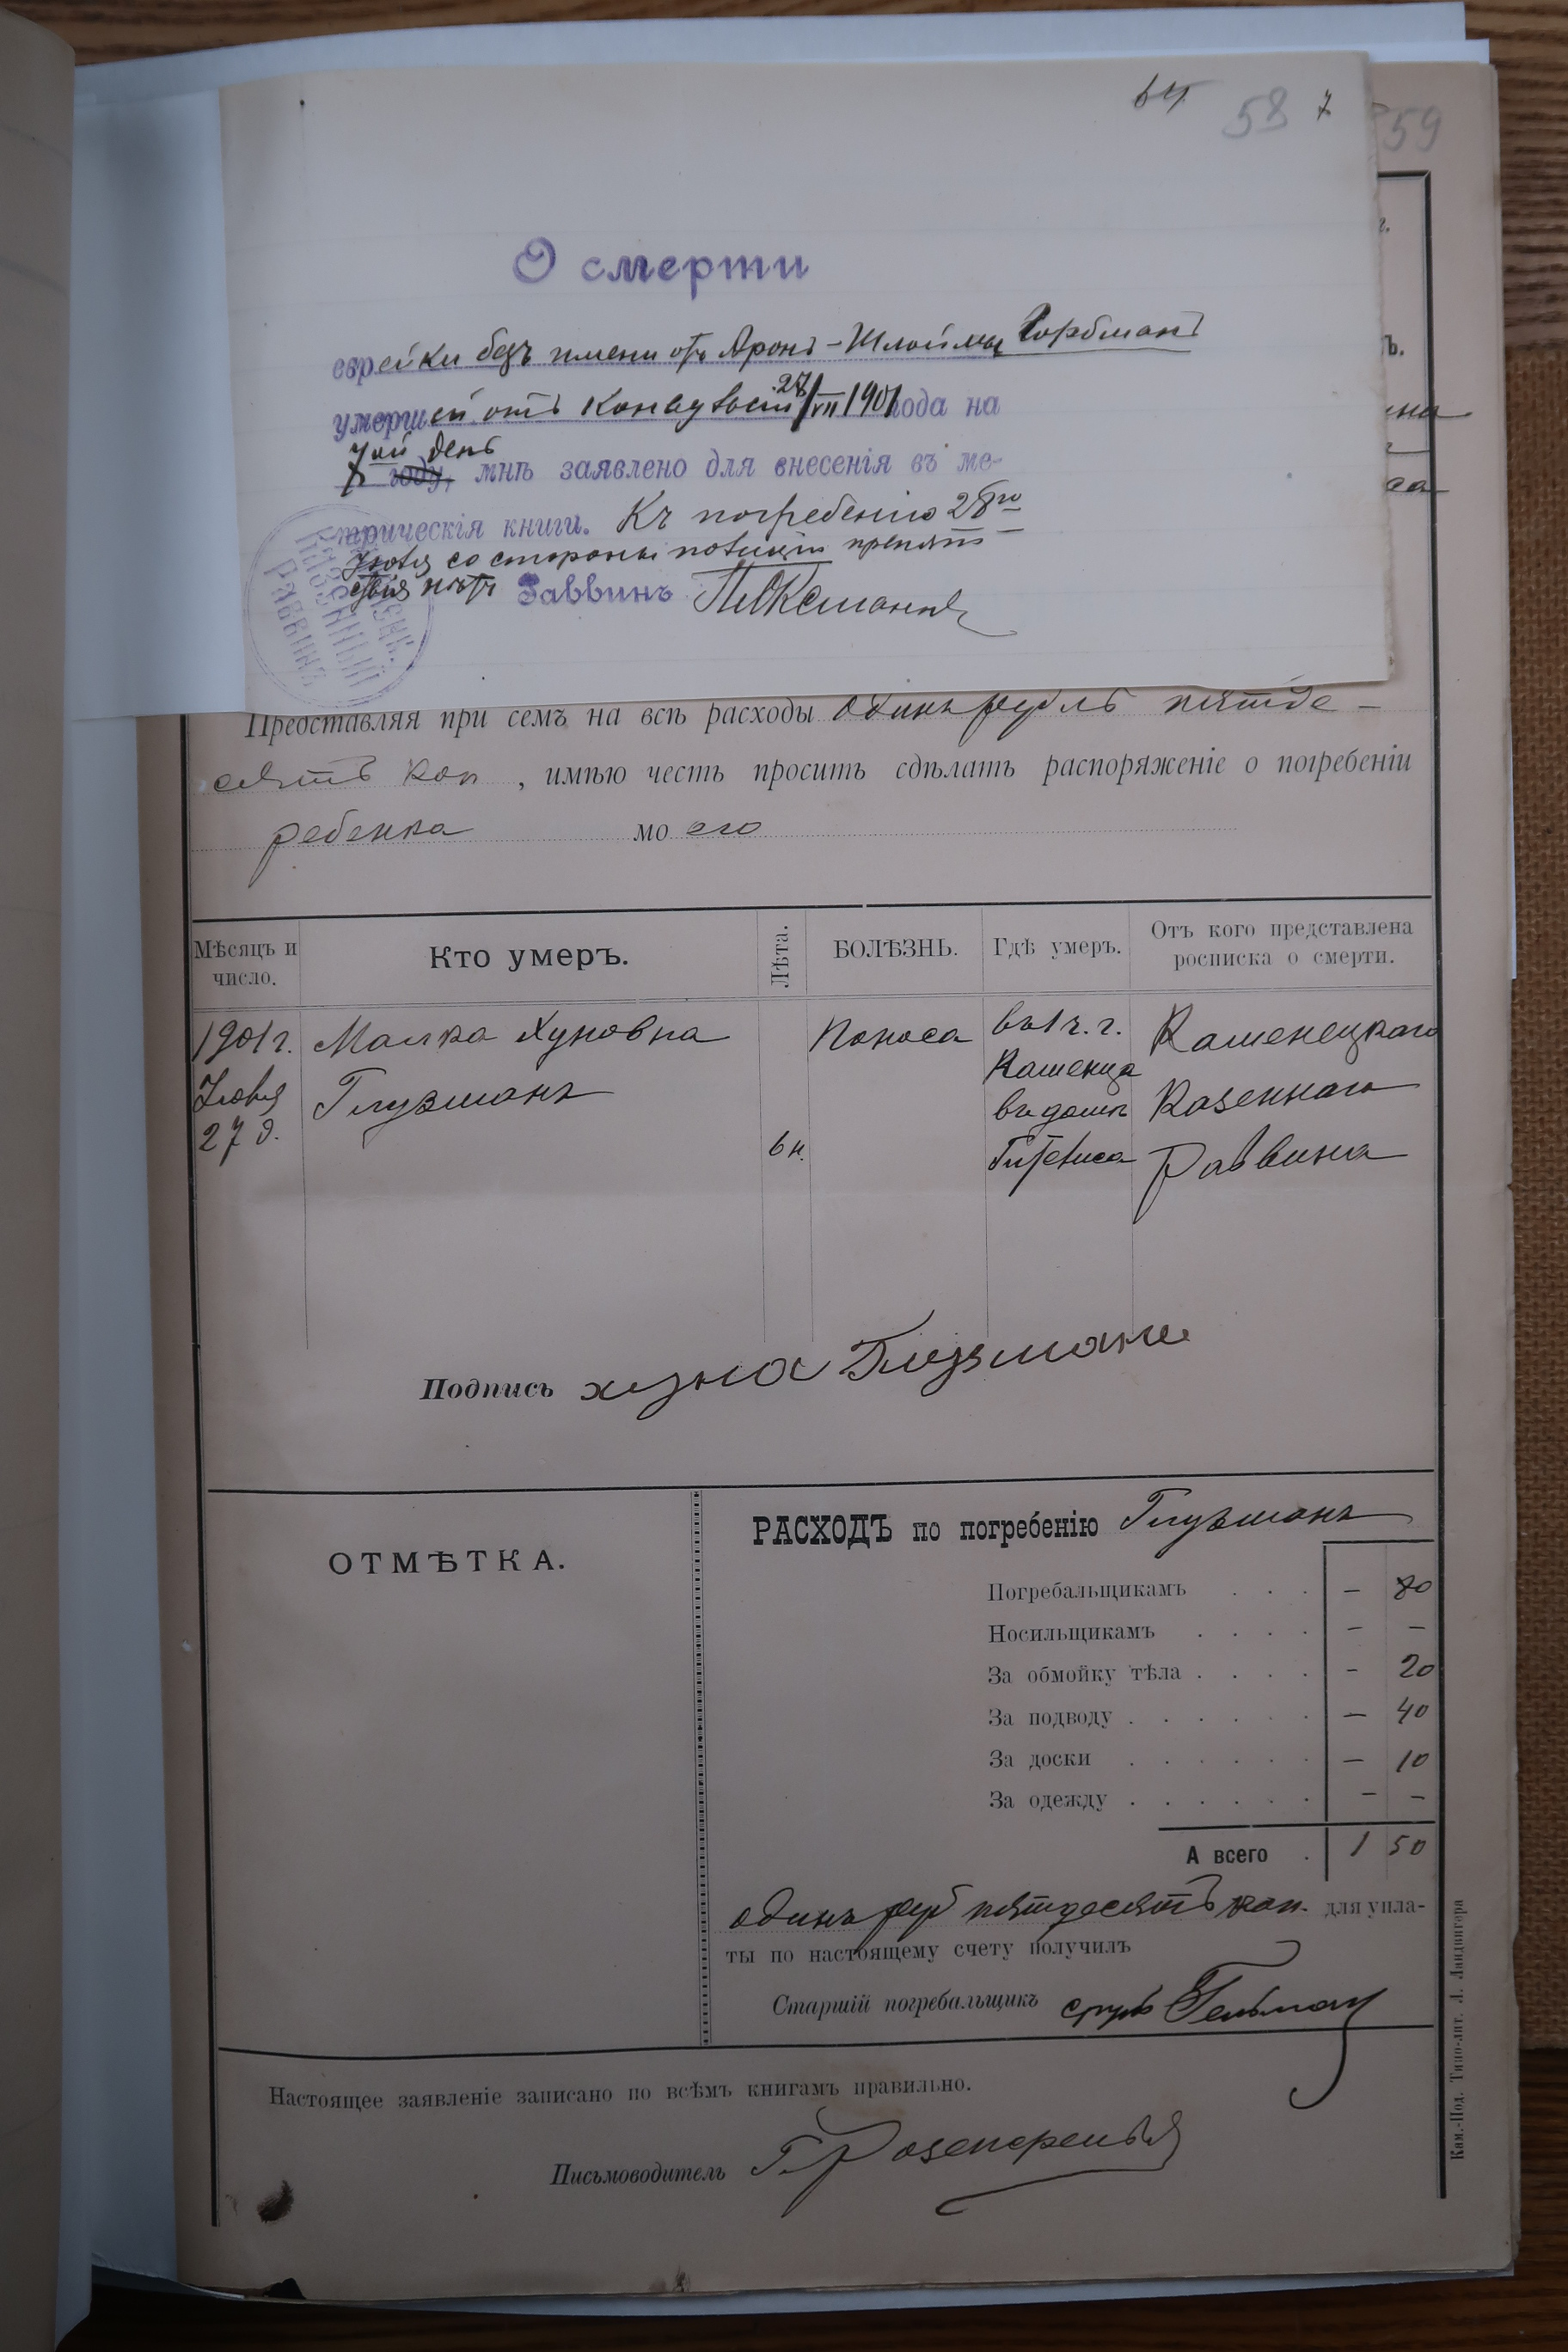 64 58 7
59
О смерти
еврейки безъ имени отъ Аронъ-Шлоймы Горбманъ
умершей отъ конвульсій 27/VII 1901 года на
7ой день
году, мнѣ заявлено для внесенія въ ме-
трическія книги. Къ погребенію 28го
Іюля со стороны полиціи препятс
ствія нѣтъ Раввинъ
Казенный
Раввинъ
Представляя при семъ на всѣ расходы одинъ рубль пятьде-
сятъ коп, имѣю честь просить сдѣлать распоряженіе о погребеніи
ребенка моего
Мѣсяцъ и число. Кто умеръ. Лѣта. БОЛѢЗНЬ. Гдѣ умеръ. Отъ кого представлена росписка о смерти.
1901 г. Малка Хуновна Поноса въ 1 ч. г. Каменецкаго
Каменца
Іюля Глузманъ въ домѣ Казеннаго
27 д. 6 н. Раввина
Подпись хуна Глузманъ
ОТМѢТКА.
РАСХОДЪ по погребенію Глузманъ
Погребальщикамъ . . . — 80
Носильщикамъ . . . . — —
За обмойку тѣла . . . . - 20
За подводу . . . . . . — 40
За доски . . . . . . — 10
За одежду . . . . . . — —
А всего . 1 50
одинъ руб пятьдесятъ коп. для упла-
ты по настоящему счету получилъ
Старшій погребальщикъ сруль Гельман
Настоящее заявленіе записано по всѣмъ книгамъ правильно.
Письмоводитель
Кам.-Под. Типо-лит. Л. Ландвигера